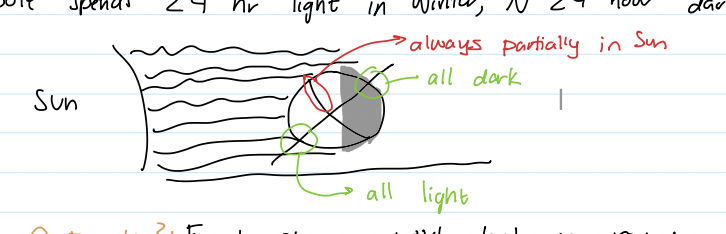 spends 24 hr light in Winter, N 24 hour dark
always partially in Sun
all dark
Sun
all light